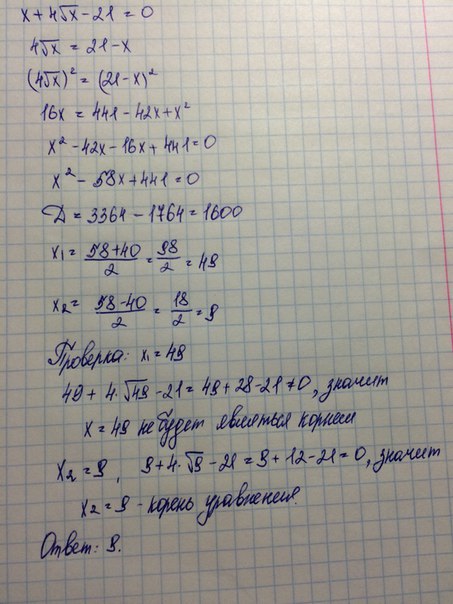 x + 4√x - 21 = 0
4√x = 21 - x
(4√x)² = (21 - x)²
16x = 441 - 42x + x²
x² - 42x - 16x + 441 = 0
x² - 58x + 441 = 0
D = 3364 - 1764 = 1600
x₁ = (58+40)/2 = 98/2 = 49
x₂ = (58-40)/2 = 18/2 = 9
Проверка: x₁ = 49
49 + 4·√49 - 21 = 49 + 28 - 21 ≠ 0, значит
x = 49 не будет являться корнем
x₂ = 9, 9 + 4·√9 - 21 = 9 + 12 - 21 = 0, значит
x₂ = 9 - корень уравнения.
Ответ: 9.